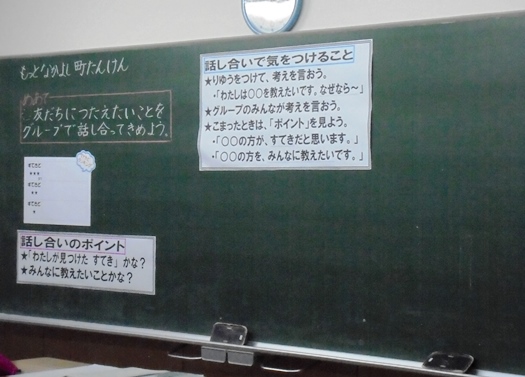 もっとなかよし町たんけん
めあて
友だちにつたえたいことを
グループで話し合ってきめよう。
すてきど
★★★
すてきど
★★
すてきど
★
話し合いのポイント
★「わたしが見つけた すてき」かな?
★みんなに教えたいことかな?
話し合いで気をつけること
★りゆうをつけて、考えを言おう。
・「わたしは○○を教えたいです。なぜなら～」
★グループのみんなが考えを言おう。
★こまったときは、「ポイント」を見よう。
・「○○の方が、すてきだと思います。」
・「○○の方を、みんなに教えたいです。」